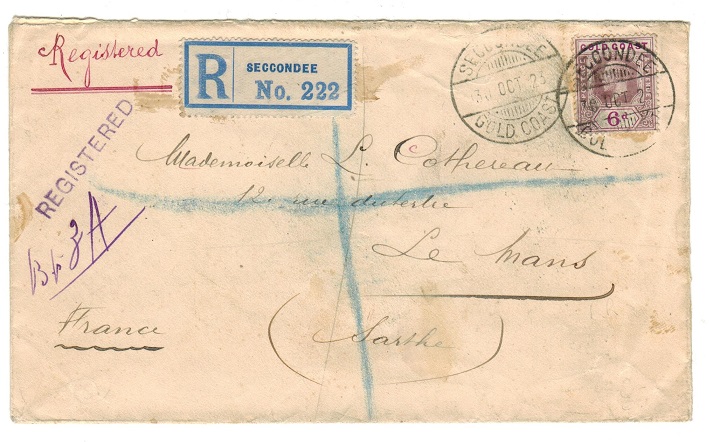 Registered
R SECCONDEE
No. 222
SECCONDEE
OCT 23
GOLD COAST
GOLD COAST
6d
SECCONDEE
OCT 2
REGISTERED
Mademoiselle L. Cothereau
12. rue du tertre
Le Mans
France
(Sarthe)